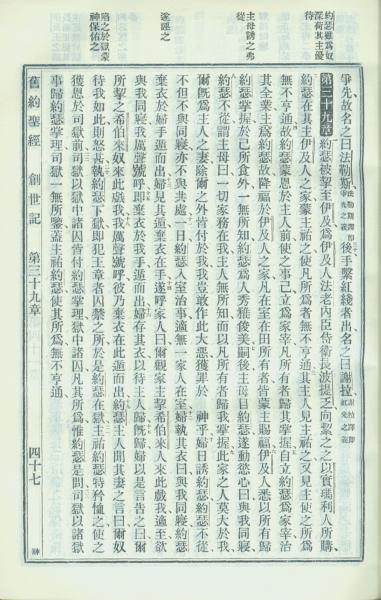 約瑟雖爲奴
深荷其主優
待
主母誘之弗
從
遂誣之
陷之於獄蒙
神保佑之
爭先故名之曰法勒斯法勒斯譯即爭先之義後手繫紅綫者出名之曰謝拉謝拉譯即紅光之義
第三十九章約瑟被挈至伊及爲伊及人法老內臣侍衛長波提乏向挈之之以實瑪利人所購
約瑟在其主伊及人之家蒙主祐之使凡所爲者無不亨通其主人見主祐之又見主使之所爲
無不亨通故約瑟蒙恩於主人前使之事己立爲家宰凡所有者歸其掌握自立約瑟爲家宰治
其全業主爲約瑟故降福於伊及人之家凡在室在田所有者皆蒙主賜福伊及人悉以所有歸
約瑟掌握於己所食外一無所知約瑟爲人秀雅俊美嗣後主母目約瑟遂動慾心曰與我同寢
約瑟不從謂主母曰一切家務在我主人無所知而以凡所有者歸我掌握此家之人莫大於我
爾既爲主人之妻除爾之外皆付於我我豈敢作此大惡獲罪於 神乎婦日誘約瑟約瑟不從
不但不與同寢亦不與共處一日約瑟入室治事適無一家人在室婦執其衣曰與我同寢約瑟
棄衣於婦手遁而出婦見其遺棄衣在手遂呼家人曰爾觀家主挈希伯來人來此戲我適至欲
與我同寢我厲聲號呼即棄衣於我手遁而出婦存其衣以待主人歸既歸婦以是言告之曰爾
所挈之希伯來奴來此戲我我厲聲號呼彼乃棄衣在此遁而出約瑟主人聞其妻之言曰爾奴
待我如此則怒甚執約瑟下獄即犯主章者囚禁之所於是約瑟在獄主祐約瑟特矜恤之使之
獲恩於司獄前司獄以獄中諸囚皆付約瑟掌理獄中諸囚凡其所爲惟約瑟是問司獄以諸獄
事歸約瑟掌理司獄一無所鑒蓋主祐約瑟使其所爲無不亨通
舊約聖經 創世記 第三十九章 四十七